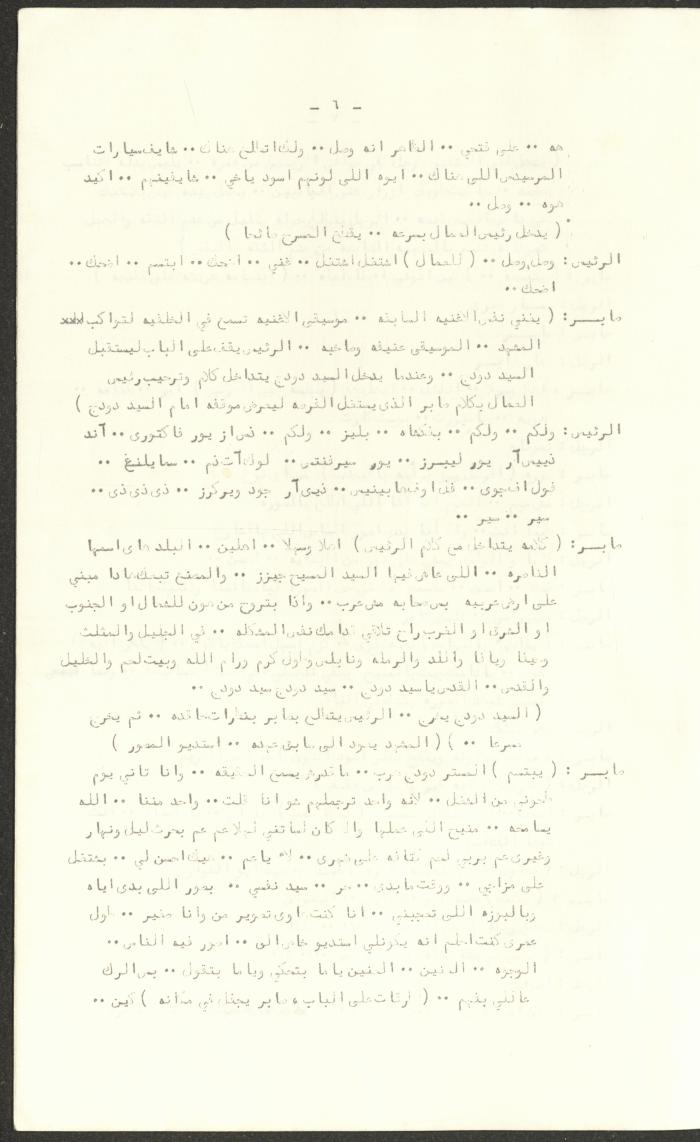 - ٦ -
هه •• على فتحي •• الظاهر انه وصل •• ولك اتطلع هناك •• شايف سيارات
المرسيدس اللي هناك •• ايوه اللي لونهم اسود ياخي •• شايفينهم •• اكيد
هوه •• وصل ••
( يدخل رئيس العمال بسرعه •• يقطع المسرح صائحا )
الرئيس: وصل وصل •• ( للعمال ) اشتغل اشتغل •• غني •• اضحك •• ابتسم •• اضحك ••
اضحك ••
صابـــر: ( يغني نفس الاغنيه السابقه •• موسيقى الاغنيه تسمع في الخلفيه لتواكب
المشهد •• الموسيقى عنيفه وصاخبه •• الرئيس يقف على الباب ليستقبل
السيد دودج •• وعندما يدخل السيد دودج يتداخل كلام وترحيب رئيس
العمال بكلام صابر الذي يستغل الفرصه ليعرض موقفه امام السيد دودج )
الرئيس: ولكم •• ولكم •• بليز •• ولكم •• ذس از يور فاكتوري •• آند
ذييس آر يور ليبرز •• يور سيرفنتس •• لوك آت ذم •• سمايلنغ ••
فول اف جوي •• فل اوف هابينيس •• ذيي آر جود ويركرز •• ذي ذي ذي ••
سير •• سير ••
صابـــر: ( كلامه يتداخل مع كلام الرئيس ) اهلا وسهلا •• اهلين •• البلد هاي اسمها
الناصره •• اللي عاش فيها السيد المسيح جيزز •• والمصنع تبعك هادا مبني
على ارض عربيه بس صحابه مش عرب •• واذا بتروح من هون للشمال او الجنوب
او الشرق او الغرب راح تلاقي قدامك نفس المشكله •• في الجليل والمثلث
وحيفا ويافا واللد والرمله ونابلس وطول كرم ورام الله وبيت لحم والخليل
والقدس •• القدس يا سيد دودج •• سيد دودج سيد دودج ••
( السيد دودج يخرج •• الرئيس يتطلع بصابر بنظرات حاقده •• ثم يخرج
مسرعا •• ) ( المشهد يعود الى سابق عهده •• استديو المصور )
صابـــر : ( يبتسم ) المستر دودج هرب •• ما قدرش يسمع الحقيقه •• وانا تاني يوم
طحوني من الشغل •• لانه واحد ترجملهم شو انا قلت •• واحد مننا •• الله
يسامحه •• منيح اللي عملها والا كان لساتني لهلا عم عم بحرث ليل ونهار
وغيري عم يربي لحم كتافه على ضهري •• لا ياعم •• هيك احسن لي •• بشتغل
على مزاجي •• ووقت ما بدي •• حر •• سيد نفسي •• بصور اللي بدي اياه
وبالبوزه اللي تعجبني •• انا كنت هاوي تصوير من وانا صغير •• طول
عمري كنت احلم انه يكونلي استديو خاص الي •• اصور فيه الناس ••
الوجوه •• العنين •• العنين ياما بتحكي وياما بتقول •• بس الرك
عاللي بفهم •• ( طرقات على الباب، صابر يجفل في مكانه ) مين ••